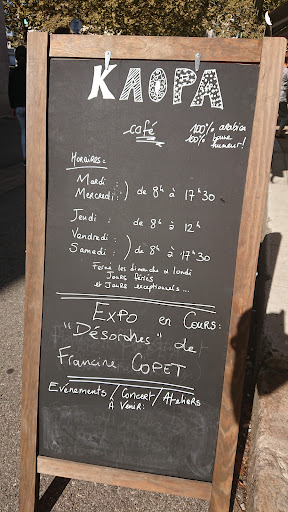 KAOPA
café
100% arabica
100% bonne
humeur!
HORAIRES:
Mardi :
Mercredi : ) de 8h à 17h30
Jeudi : de 8h à 12h
Vendredi :
Samedi : ) de 8h à 17h30
Fermé les dimanche & lundi
Jours fériés
et Jours exceptionnels...
EXPO en COURS:
"Désordres" de
Francine COPET
EVÉNEMENTS / CONCERT / ATELIERS
À VENIR: